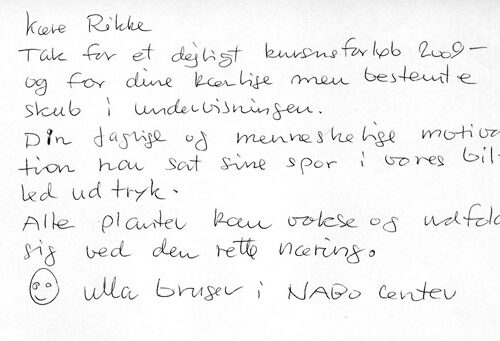 Kære Rikke
Tak for et dejligt kursusforløb 2009-
og for dine kærlige men bestemte
skub i undervisningen.
Din faglige og menneskelige motiva
tion har sat sine spor i vores bil-
led udtryk.
Alle planter kan vokse og udfold
sig ved den rette næring.
Ulla bruger i NABo center